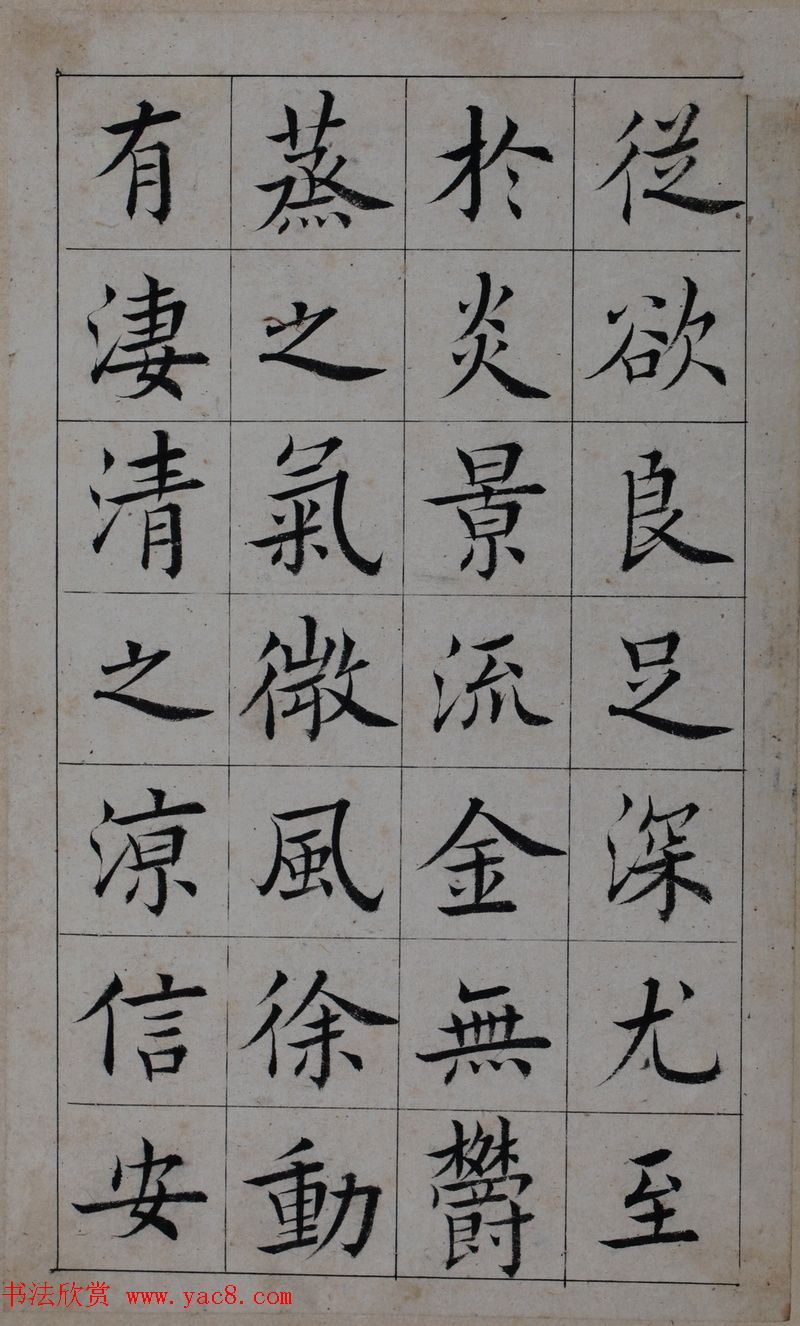 従欲良足深尤至
於炎景流金無欝
蒸之氣微風徐動
有淒清之涼信安
书法欣赏 www.yac8.com